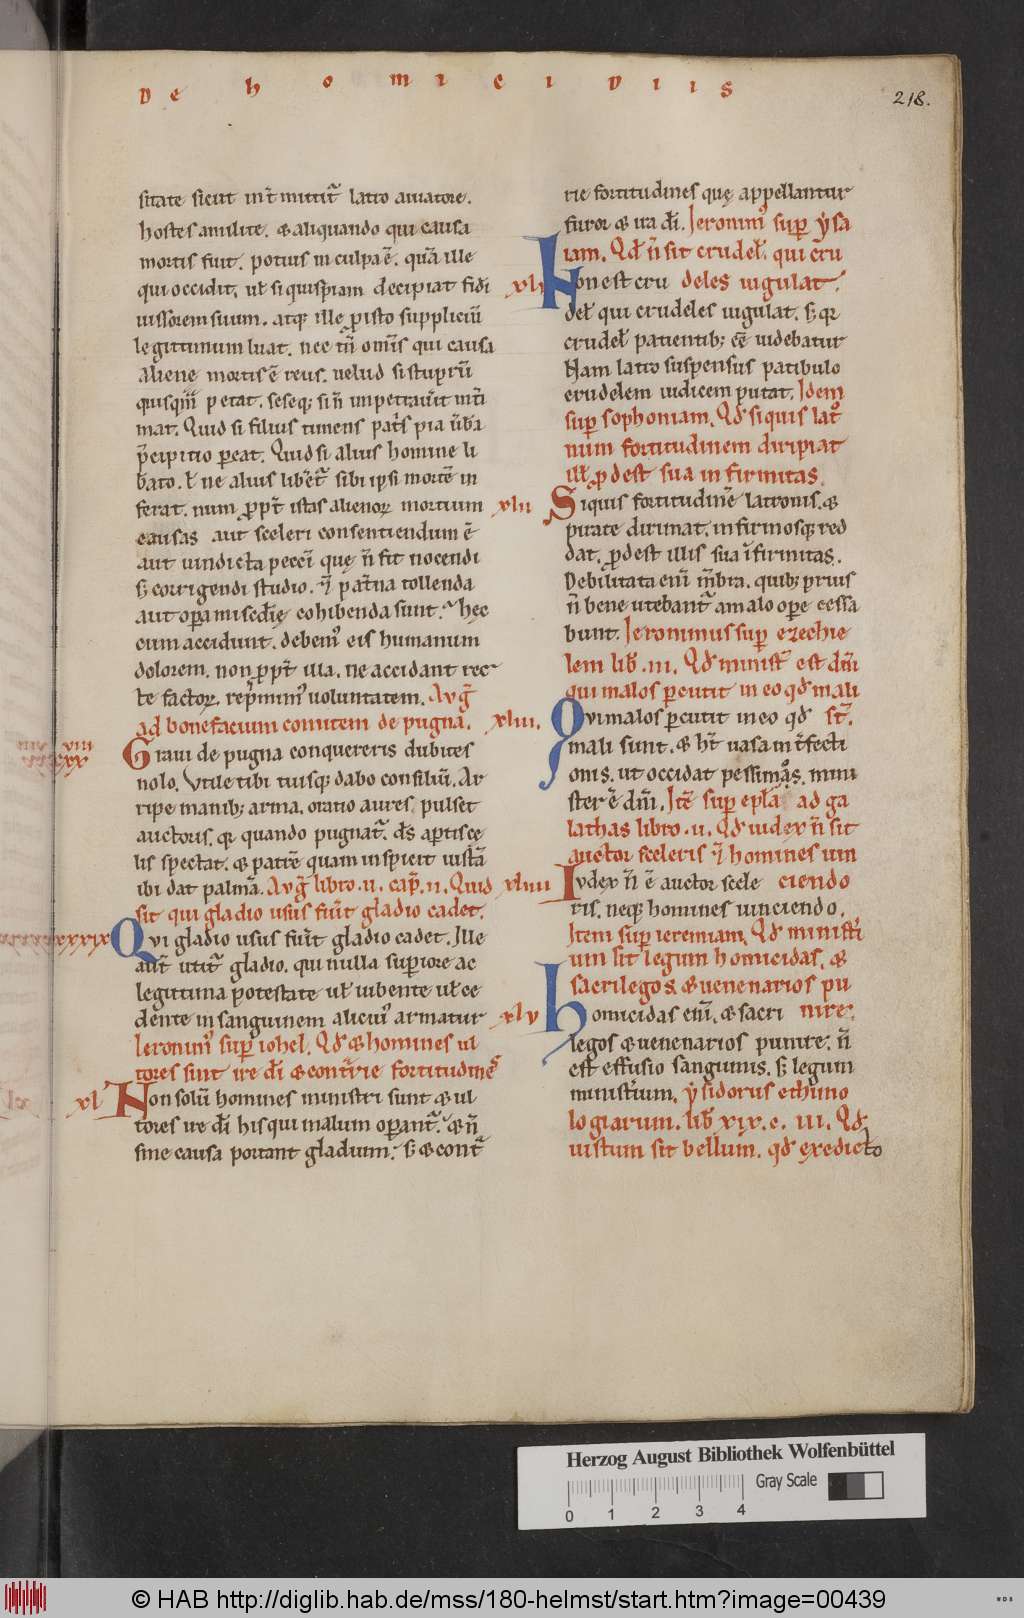 De homicidiis
218.
sitate sicut int̄ mittit᷑ latro a uiatore.
hostes a milite. & aliquando qui causa
mortis fuit. potius in culpa ē. quā ille
qui occidit. ut̄ si quispiam decipiat fidi
iussorem suum. atq; ille ꝓ isto suppliciū
legittimum luat. nec tn̄ om̄is qui causa
aliene mortis ē reus. uelud si stuprū
petat. seseq; si ñ
mat. Quid si filius timens pat̄s pia ūba
p̄cipitio ꝑeat. Quid si alius homine li
bato. ł ne alius sibi ipsi mortē in
ferat. num ꝓpt̄ istas alienoꝝ mortium
causas aut sceleri consentiendum ē
aut uindicta pecc̄i quę ñ fit nocendi
sꝫ corrigendi studio. ⁊ pat̄na tollenda
aut oꝑa mis̄cdię cohibenda sunt. hęc
cum accidunt. debem᷒ eis humanum
dolorem. non ꝓpt̄ illa. ne accidant rec
te factoꝝ. rep̄mim᷒ uoluntatem. Aug̃
ad bonefacium comitem de pugna.
xliii.
Graui de pugna conquereris dubites
nolo. Vtile tibi tuisq; dabo consiliū. Ar
ripe manib; arma. oratio aures pulset
auctoris. qꝛ quando pugnat᷑. ds̄ aꝑtis cę
lis spectat. & partē quam inspicit iustā
ibi dat palmā. Aug̃ libro .ii. cap̄. ii. Quid
sit qui gladio usus fuīt gladio cadet.
xxxix
Qvi gladio usus fuīt gladio cadet. Ille
aut̄ utit᷑ gladio. qui nulla suꝑiore ac
legittima potestate ut̄ iubente ut̄ cę
dente in sanguinem alicui᷒ armatur
Ieronim᷒ suꝑ iohel. Qđ & homines ul
tores sint ire đi & cont᷑rie fortitudines
xl
Non solū homines ministri sunt & ul
tores ire đi his qui malum oꝑant᷑. & ñ
sine causa portant gladium; sꝫ & cont᷑
rie fortitudines quę appellantur
furor & ira đi. Ieronim᷒ suꝑ ẏsa
iam. Qđ ñ sit crudeł. qui cru
deles iugulat.
xli
Non est cru
deł qui crudeles iugulat. sꝫ qꝛ
crudeł patientib; ēē uidebatur
Nam latro suspensus patibulo
crudelem iudicem putat. Idem
suꝑ sophoniam. Qđ si quis lat᷒
num fortitudinem diripiat
illł ꝓdest sua infirmitas.
xlii
Siquis fortitudinē latronis. &
pirate dirimat. infirmosq; red
dat. ꝓdest illis sua īfirmitas.
Debilitata enī m̄bra. quib; prius
ñ bene utebant᷑ a malo oꝑe cessa
bunt. Ieronimus suꝑ ezechie
lem lib̄ .iii. Qđ minist᷑ est dn̄i
qui malos ꝑcutit in eo qđ mali
st̄.
Qvi malos ꝑcutit in eo qđ
mali sunt. & ht̄ uasa int̄fecti
onis. ut occidat pessimos. mini
ster ē dn̄i. Itē suꝑ ep̄łā ad ga
lathas libro .ii. Qđ iudex ñ sit
auctor sceleris ⁊ homines uin
ciendo
xliiii
Iudex ñ ē auctor scele
ris. neq; homines uinciendo.
Item suꝑ ieremiam. Qđ ministri
um sit legum homicidas. &
sacrilegos. & uenenarios pu
nire.
xlv
homicidas enī. & sacri
legos & uenenarios punire; ñ
est effusio sanguinis. sꝫ legum
minist̄ium. ẏsidorus ethimo
logiarum. lib̄ xix. c. iii. Qđ
iustum sit bellum. qđ ex edicto
Herzog August Bibliothek Wolfenbüttel
Gray Scale
0 1 2 3 4
© HAB http://diglib.hab.de/mss/180-helmst/start.htm?image=00439